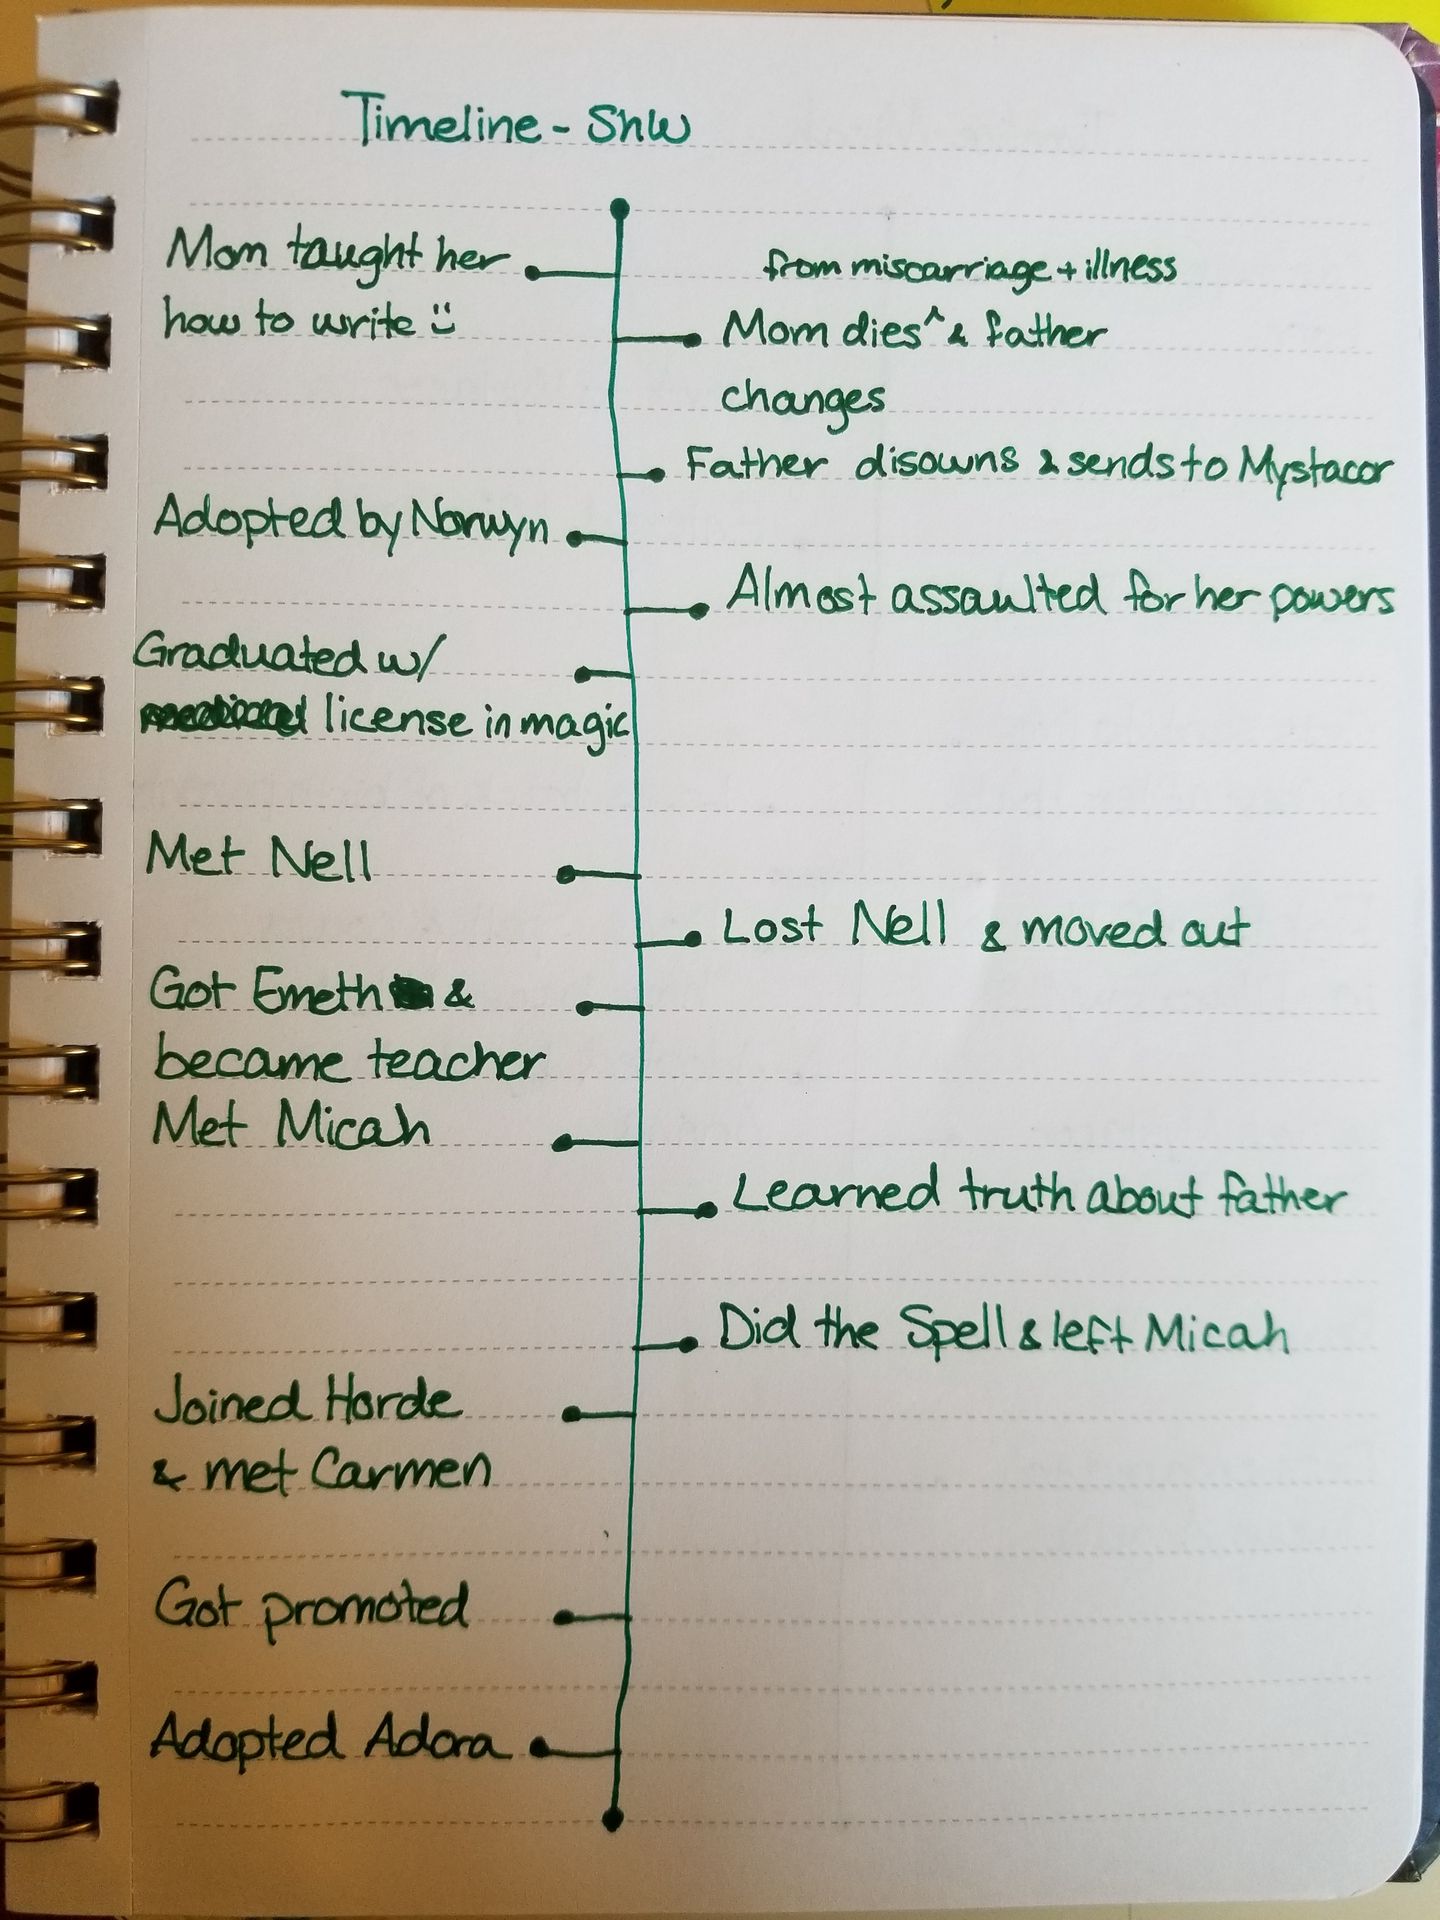 Timeline - ShW
Mom taught her
how to write
from miscarriage + illness
Mom dies ^ & father
changes
Father disowns & sends to Mystacor
Adopted by Norwyn
Almost assaulted for her powers
Graduated w/
license in magic
Met Nell
Lost Nell & moved out
Got Emeth &
became teacher
Met Micah
Learned truth about father
Did the Spell & left Micah
Joined Horde
& met Carmen
Got promoted
Adopted Adora